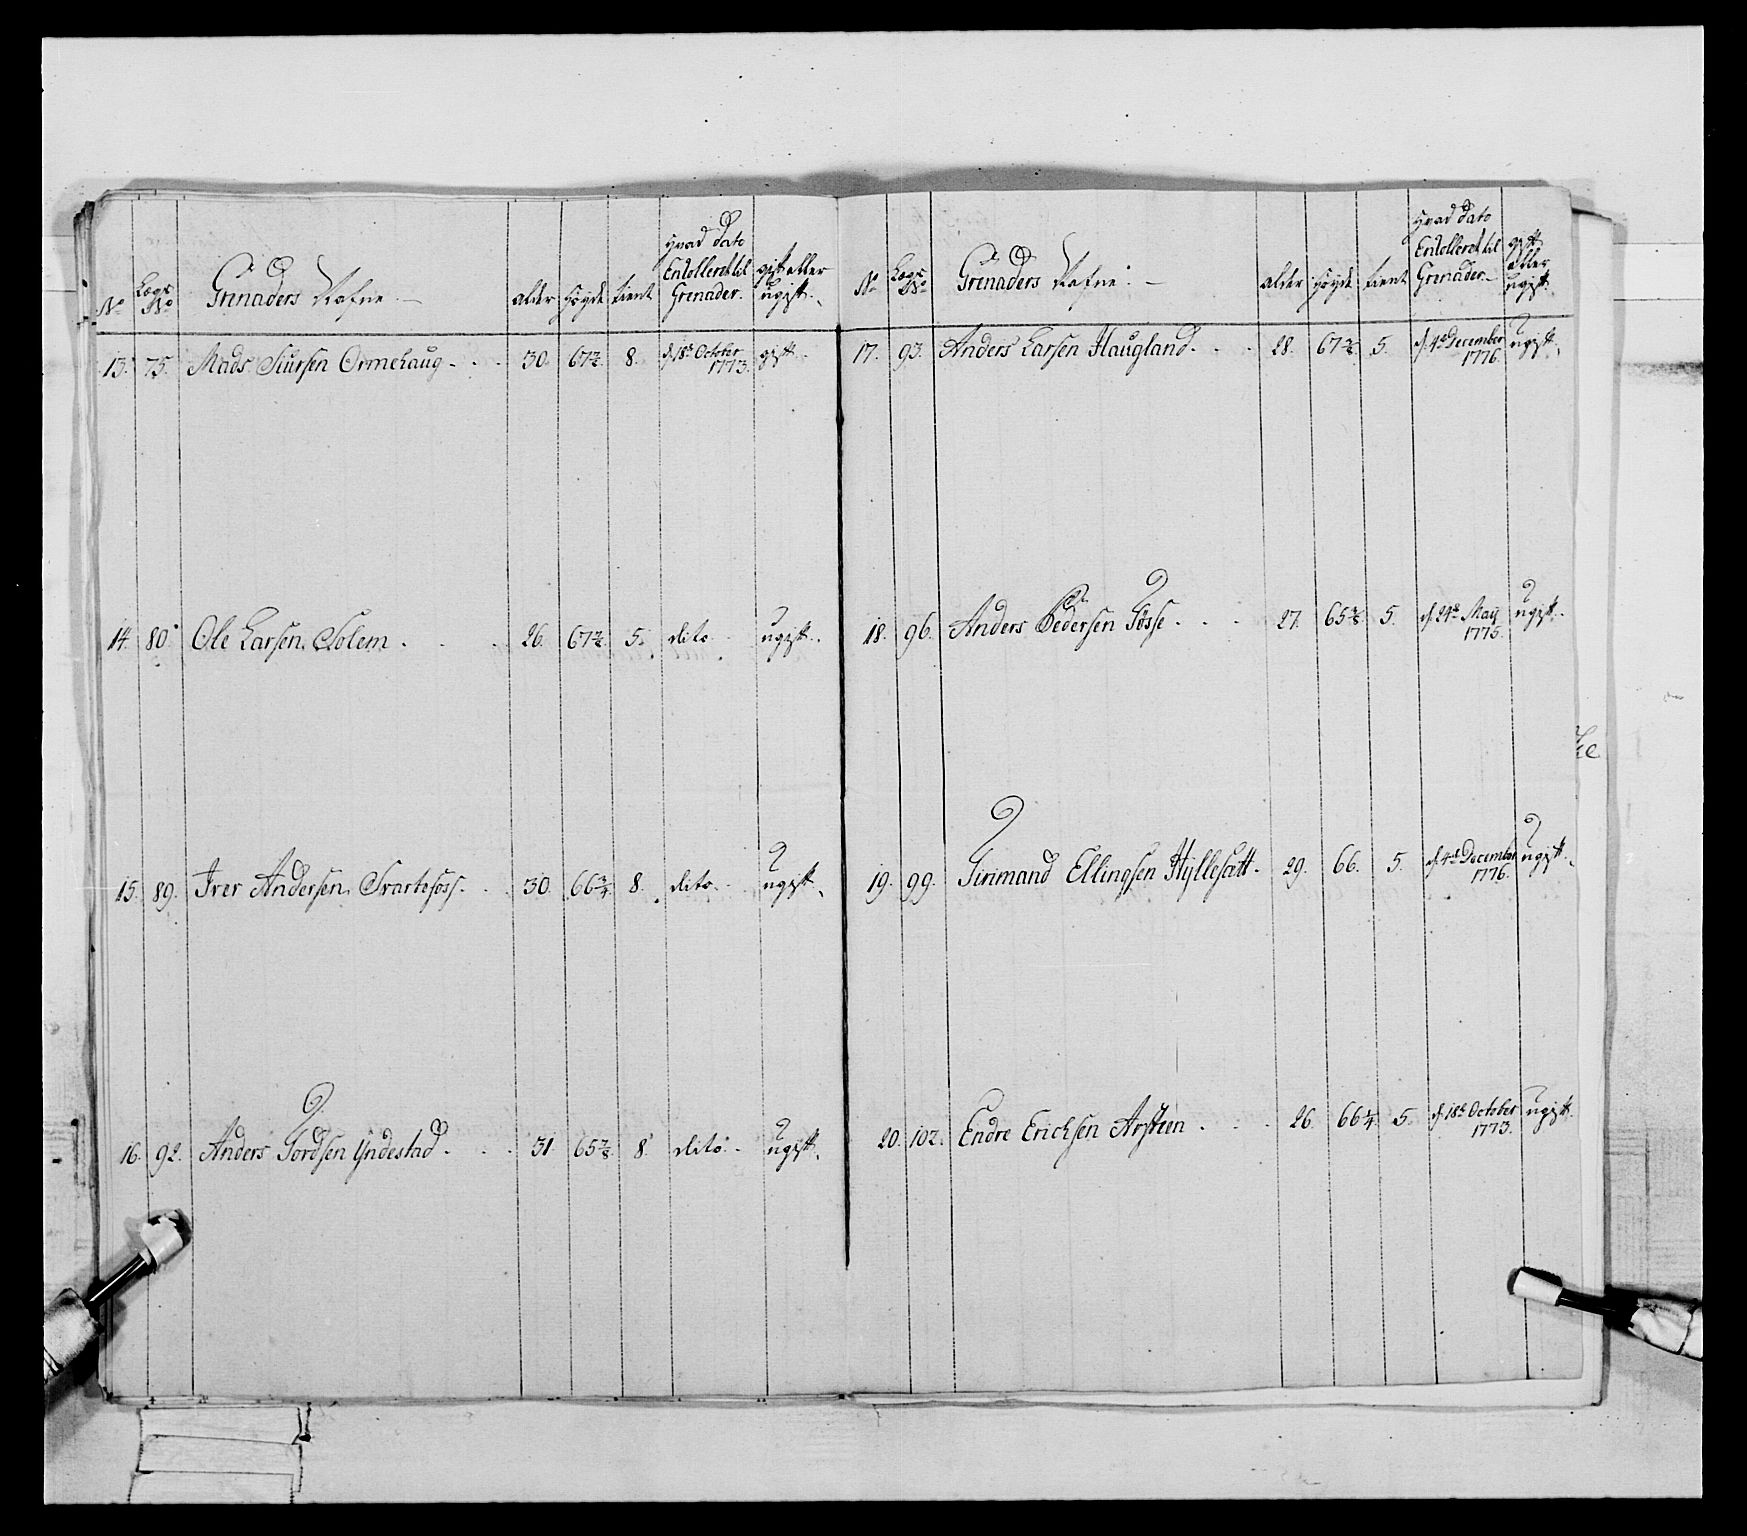 No Lægs No Grenaders Nafne. alder høyde tient hvad dato Enrolleret til Grenader. gift eller ugift.
13. 75. Mads Siursen Ormehaug 30. 67 8. d 18de October 1773. gift
14. 80. Ole Larsen Solem 26. 67 5. dito ugift.
15. 89. Iver Andersen Svartefos 30. 66 3/4 8. dito ugift.
16. 92. Anders Tordsen Yndestad 31. 65 8. dito ugift.
No Lægs No Grenaders Nafne. alder høyde tient hvad dato Enrolleret til Grenader. gift eller ugift
17. 93. Anders Larsen Haugland 28. 67 5. d 4de December 1776. ugift.
18. 96. Anders Pedersen Tøsse 27. 65 5. d 24de May 1775. ugift.
19. 99. Sirimand Ellingsen Hyllesætt 29. 66. 5. d 4de December 1776. ugift.
20. 102. Endre Erichsen Arsteen 26. 66 1/4 5. d 18de October 1773. ugift.